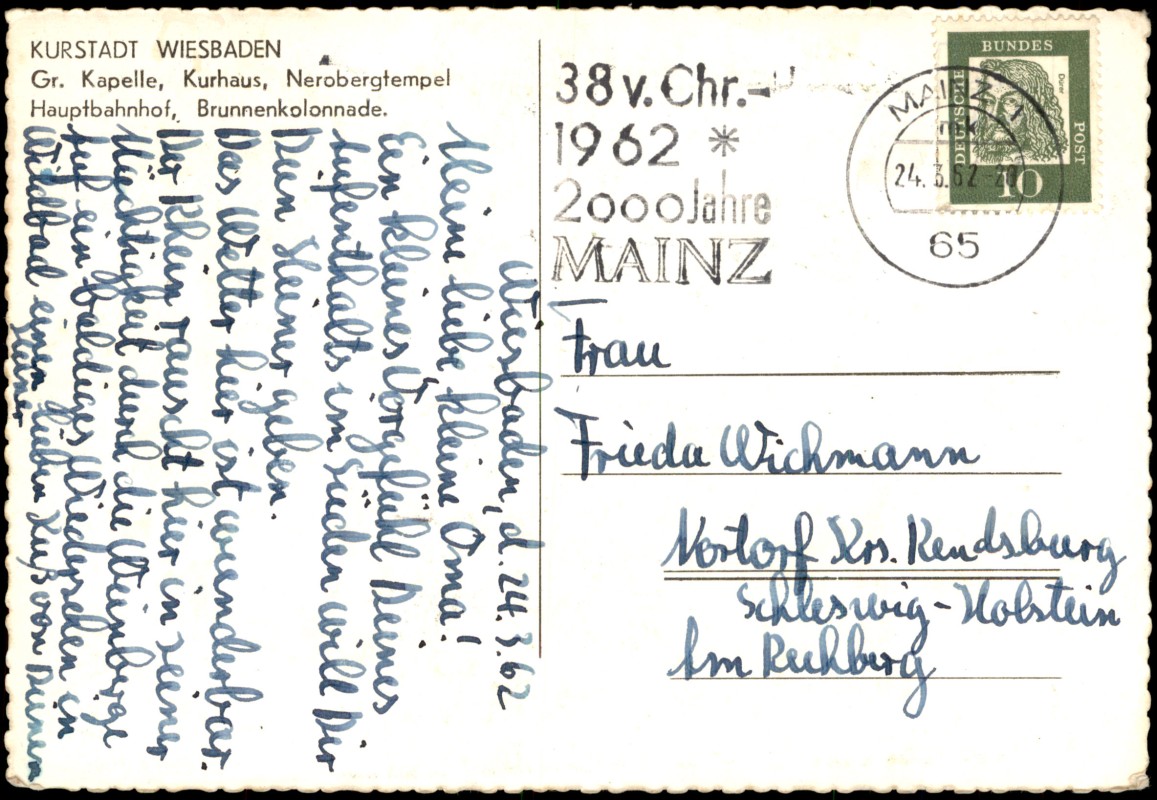 KURSTADT WIESBADEN
Gr. Kapelle, Kurhaus, Nerobergtempel
Hauptbahnhof, Brunnenkolonnade.
Wiesbaden, d. 24.3.62
Meine liebe kleine Oma!
Ein kleines Vorgefühl Deines
Aufenthalts im Süden will Dir
Dein Heiner geben.
Das Wetter hier ist wunderbar.
Der Rhein rauscht hier in seiner
Mächtigkeit durch die Weinberge
Auf ein baldiges Wiedersehen in
Wildbad einen lieben Kuß von Deinem
Heiner
38 v. Chr.-
1962 *
2000 Jahre
MAINZ
MAINZ 1
mk
24.3.62-20
65
DEUTSCHE
BUNDES
POST
Dürer
10
Frau
Frieda Wichmann
Nortorf Krs. Rendsburg
Schleswig-Holstein
Am